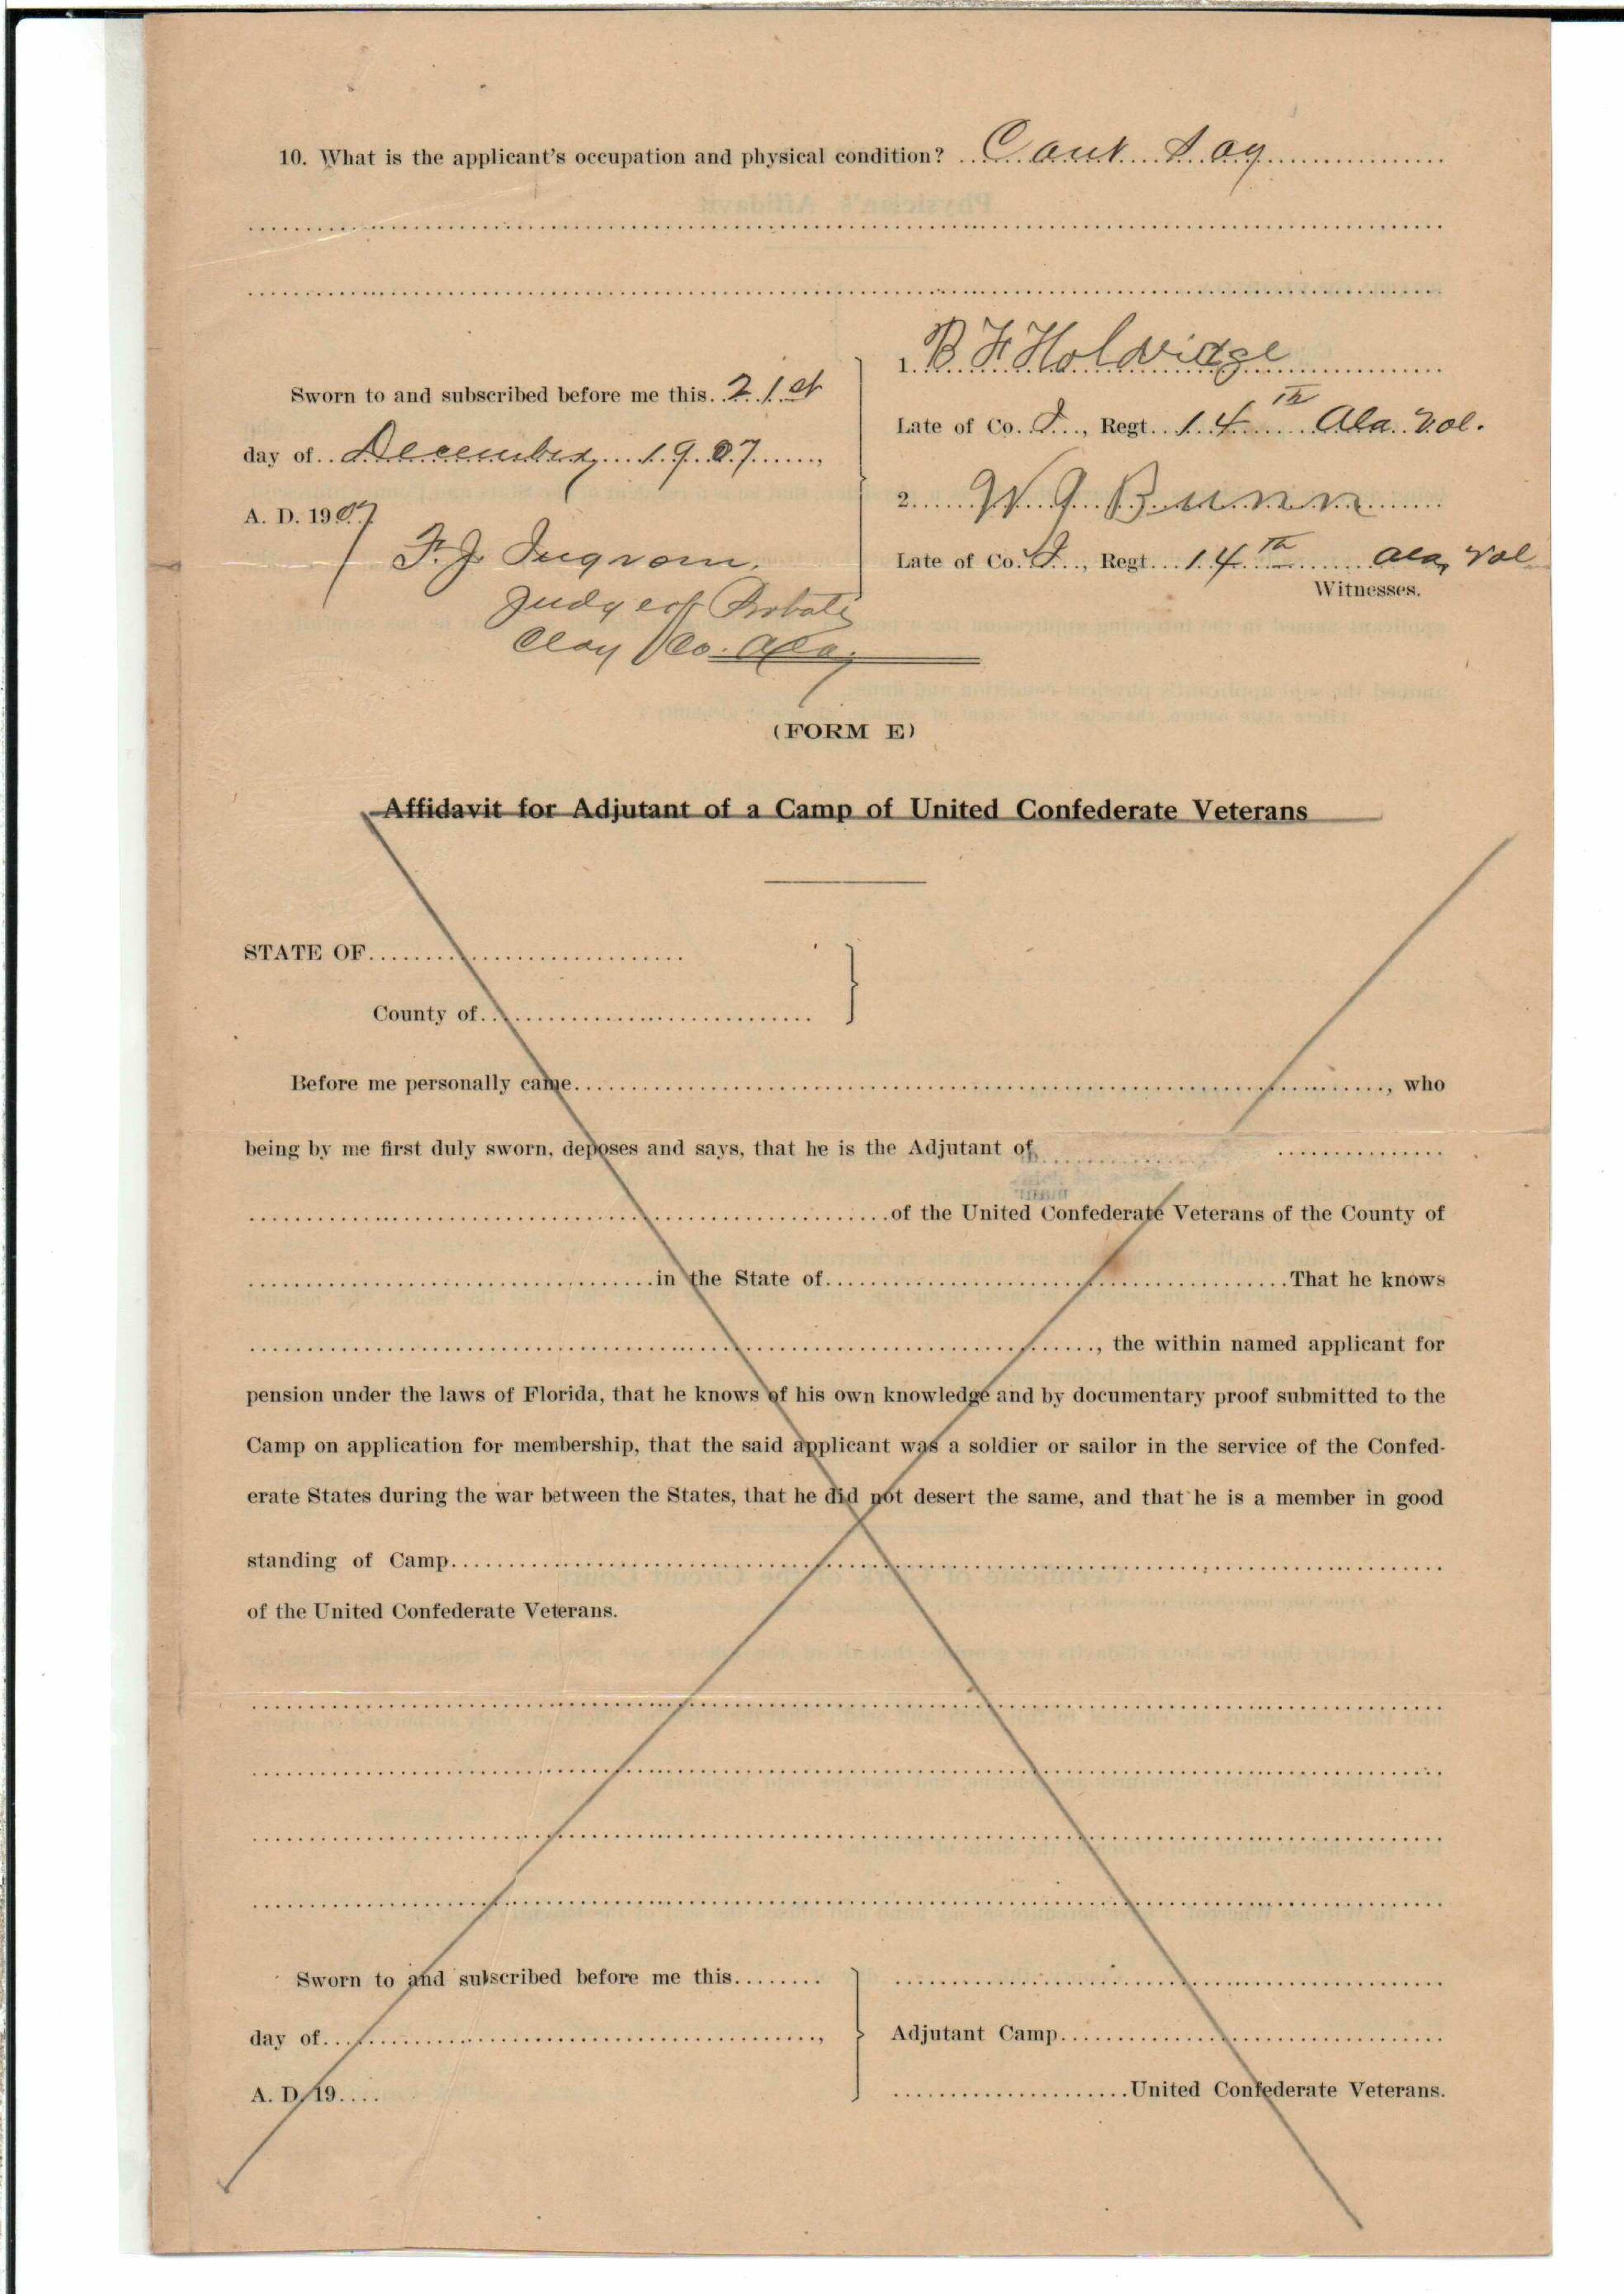 10. What is the applicant's occupation and physical condition? Cant Say
Sworn to and subscribed before me this 21st
day of December, 1907,
A. D. 1907
F. J. Ingram.
Judge of Probate
Clay Co. Ala,
1. B F Holdridge
Late of Co. I, Regt. 14th Ala. Vol.
2. W. J. Bunn
Late of Co. I, Regt. 14th Ala, Vol
Witnesses.
(FORM E)
Affidavit for Adjutant of a Camp of United Confederate Veterans
STATE OF
County of
Before me personally came, who
being by me first duly sworn, deposes and says, that he is the Adjutant of
of the United Confederate Veterans of the County of
in the State of That he knows
, the within named applicant for
pension under the laws of Florida, that he knows of his own knowledge and by documentary proof submitted to the
Camp on application for membership, that the said applicant was a soldier or sailor in the service of the Confed-
erate States during the war between the States, that he did not desert the same, and that he is a member in good
standing of Camp
of the United Confederate Veterans.
Sworn to and subscribed before me this
day of,
A. D. 19
Adjutant Camp
United Confederate Veterans.